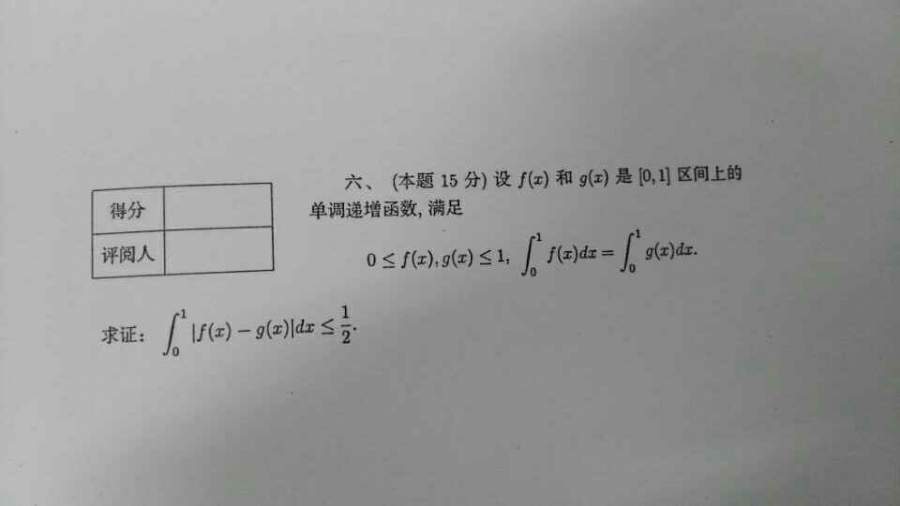 六、 (本题 15 分) 设 f(x) 和 g(x) 是 [0,1] 区间上的
单调递增函数, 满足
得分
评阅人
0 ≤ f(x), g(x) ≤ 1, ∫₀¹ f(x)dx = ∫₀¹ g(x)dx.
求证: ∫₀¹ |f(x) − g(x)|dx ≤ 1/2.